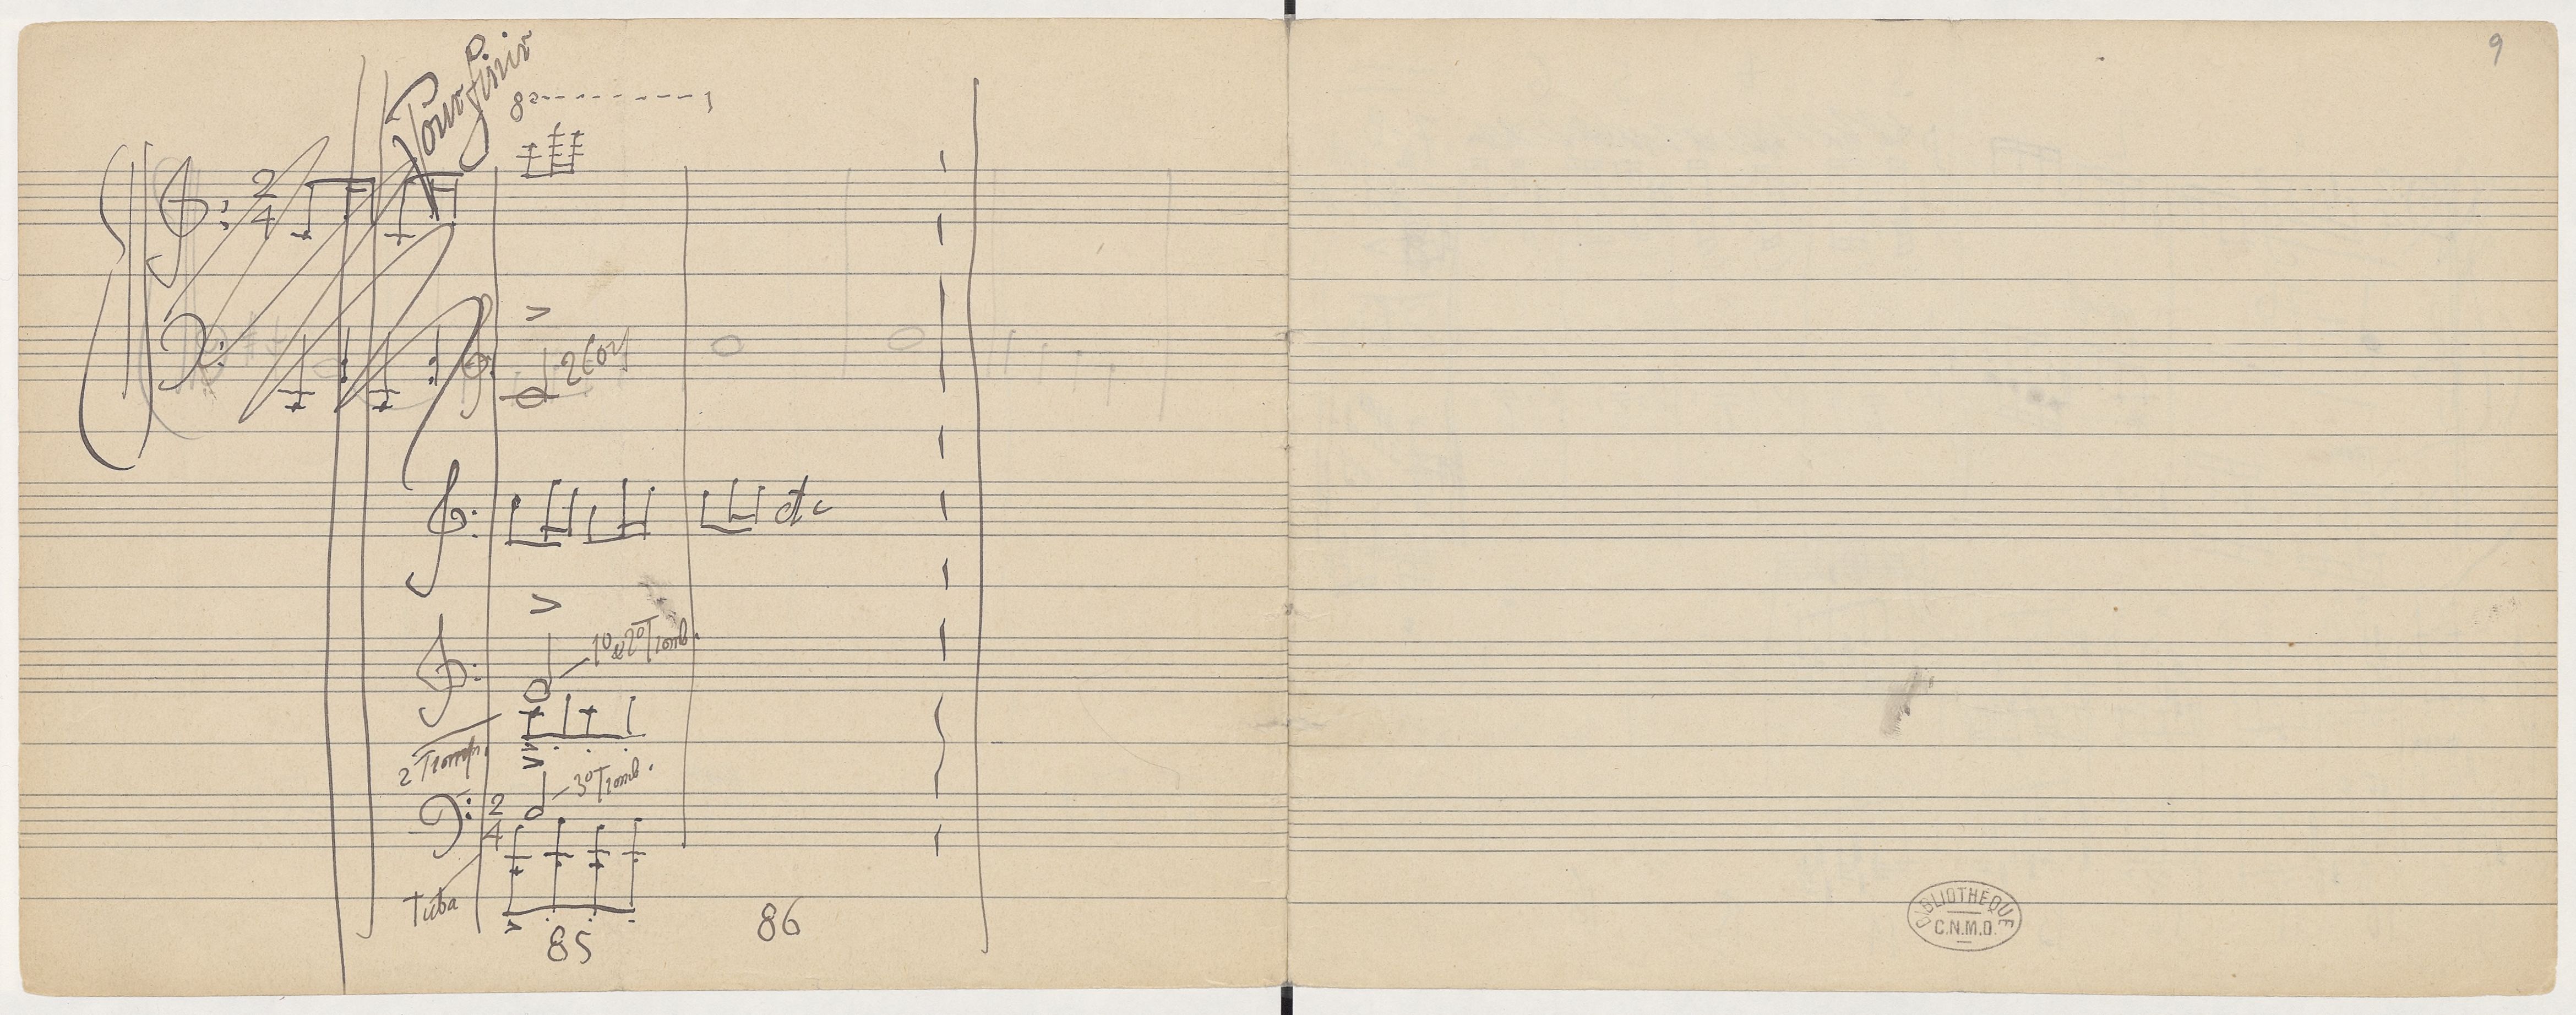 Pour finir
8a
2
4
2 Cors
etc
1º & 2º Tromb.
2 Tromp.
3º Tromb.
2
4
Tuba
85
86
9
BIBLIOTHÈQUE
C.N.M.D.